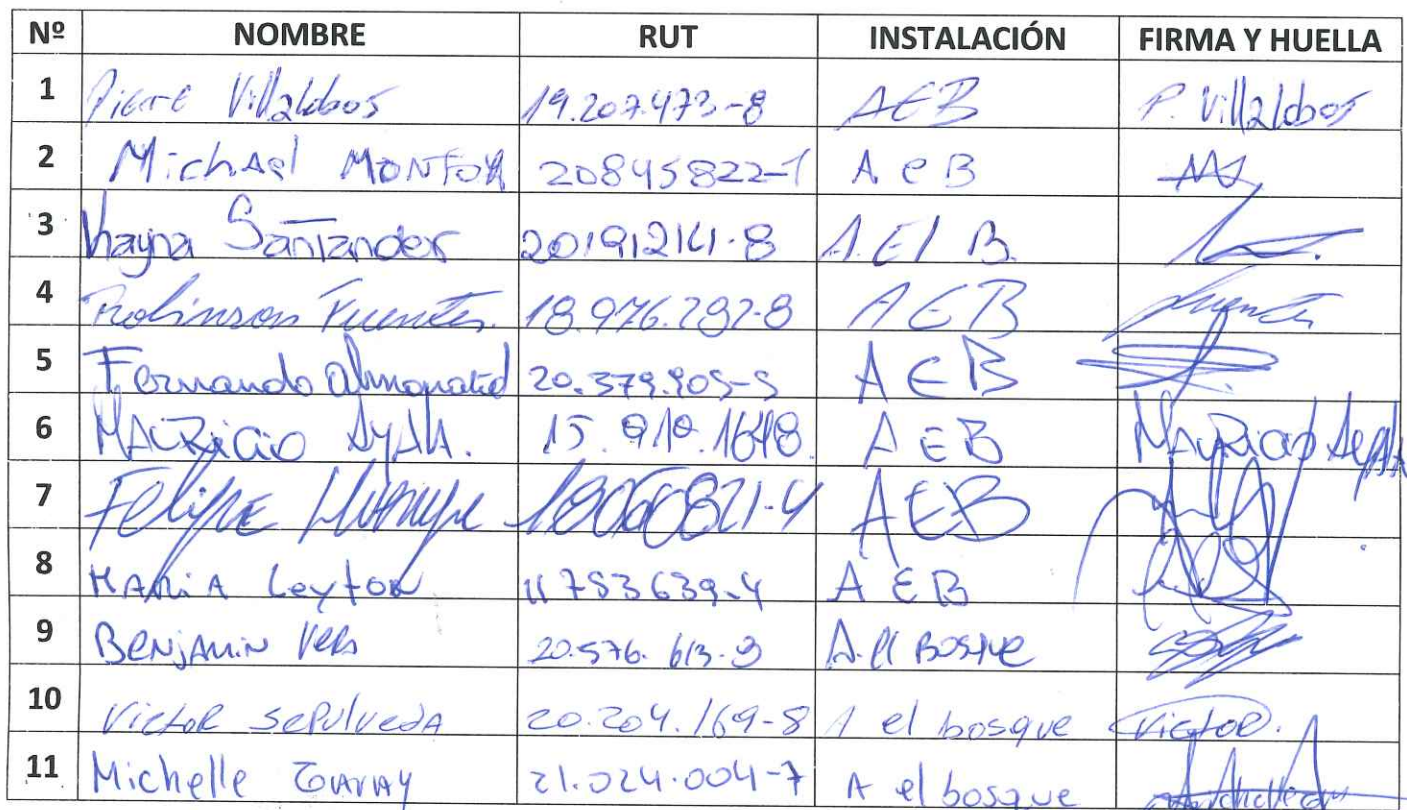 Nº NOMBRE RUT INSTALACIÓN FIRMA Y HUELLA
1 Pierre Villalobos 19.207.473-8 AEB P. Villalobos
2 Michael MONFOR 20845822-1 A e B
3 Santander A.El B.
4 Robinson Fuentes. 18.976.282-8 AEB Fuentes
5 Fernando Almonacid 20.379.905-5 AEB
6 MAURICIO AyALA. AEB MAURICIO AyALA
7 Felipe 18060821-4 AEB
8 MARIA Leyton 11753639-4 A E B
9 BENJAMIN Vera 20.576.613-8 A.El BOSQUE
10 VICTOR SEPULVEDA 20.204.169-8 A el bosque VICTOR.
11 Michelle GARAY 21.024.004-7 A el bosque